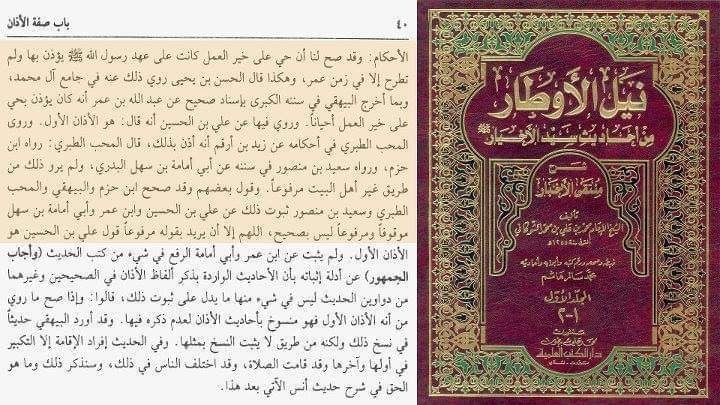 ٤٠
باب صفة الأذان
الأحكام: وقد صح لنا أن حي على خير العمل كانت على عهد رسول الله ﷺ يؤذن بها ولم
تطرح إلا في زمن عمر، وهكذا قال الحسن بن يحيى روي ذلك عنه في جامع آل محمد،
وبما أخرج البيهقي في سننه الكبرى بإسناد صحيح عن عبد الله بن عمر أنه كان يؤذن بحي
على خير العمل أحياناً. وروي فيها عن علي بن الحسين أنه قال: هو الأذان الأول. وروى
المحب الطبري في أحكامه عن زيد بن أرقم أنه أذن بذلك، قال المحب الطبري: رواه ابن
حزم، ورواه سعيد بن منصور في سننه عن أبي أمامة بن سهل البدري، ولم يرو ذلك من
طريق غير أهل البيت مرفوعاً. وقول بعضهم وقد صحح ابن حزم والبيهقي والمحب
الطبري وسعيد بن منصور ثبوت ذلك عن علي بن الحسين وابن عمر وأبي أمامة بن سهل
موقوفاً ومرفوعاً ليس بصحيح، اللهم إلا أن يريد بقوله مرفوعاً قول علي بن الحسين هو
الأذان الأول. ولم يثبت عن ابن عمر وأبي أمامة الرفع في شيء من كتب الحديث (وأجاب
الجمهور) عن أدلة إثباته بأن الأحاديث الواردة بذكر ألفاظ الأذان في الصحيحين وغيرهما
من دواوين الحديث ليس في شيء منها ما يدل على ثبوت ذلك، قالوا: وإذا صح ما روي
من أنه الأذان الأول فهو منسوخ بأحاديث الأذان لعدم ذكره فيها. وقد أورد البيهقي حديثاً
في نسخ ذلك ولكنه من طريق لا يثبت النسخ بمثلها. وفي الحديث إفراد الإقامة إلا التكبير
في أولها وآخرها وقد قامت الصلاة، وقد اختلف الناس في ذلك، وسنذكر ذلك وما هو
الحق في شرح حديث أنس الآتي بعد هذا.
نيل الأوطار
من أحاديث سيد الأخيار ﷺ
شرح
منتقى الأخبار
تأليف
الشيخ الإمام محمد بن علي بن محمد الشوكاني
المتوفى سنة ١٢٥٥هـ
محمد سالم هاشم
المجلد الأول
١-٢
دار الكتب العلمية